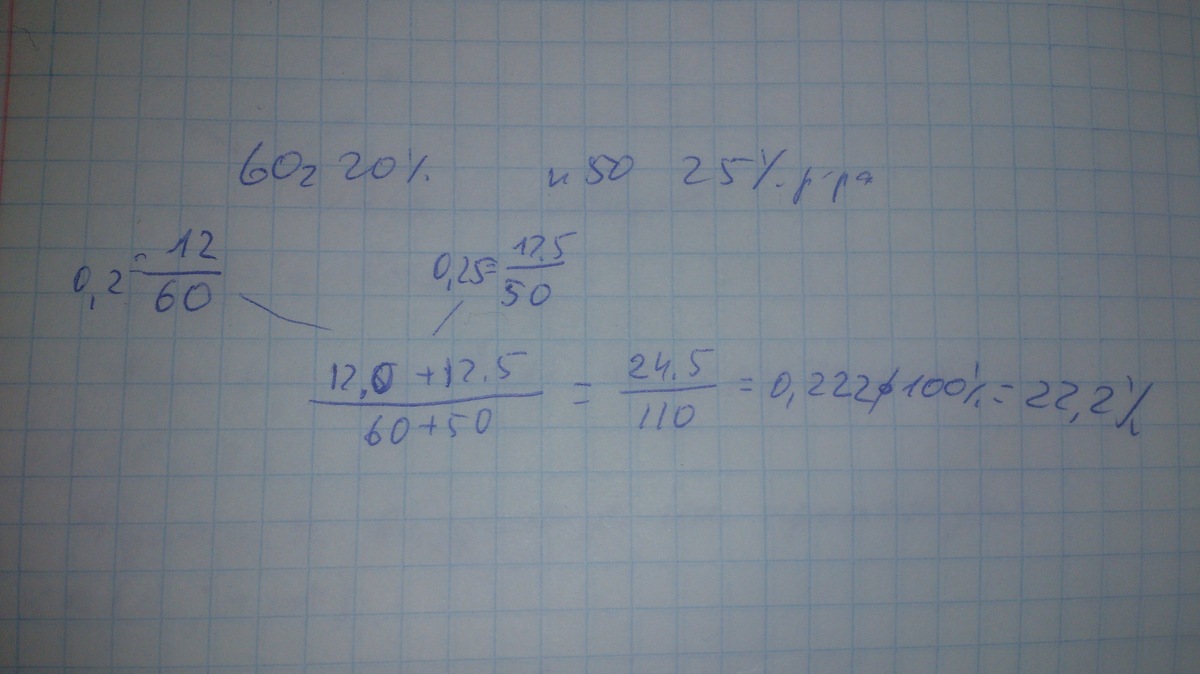 60г 20% и 50 25% р-ра
0,2 = 12/60 0,25 = 12.5/50
12,0 + 12.5 / 60+50 = 24.5/110 = 0,222 * 100% = 22,2%